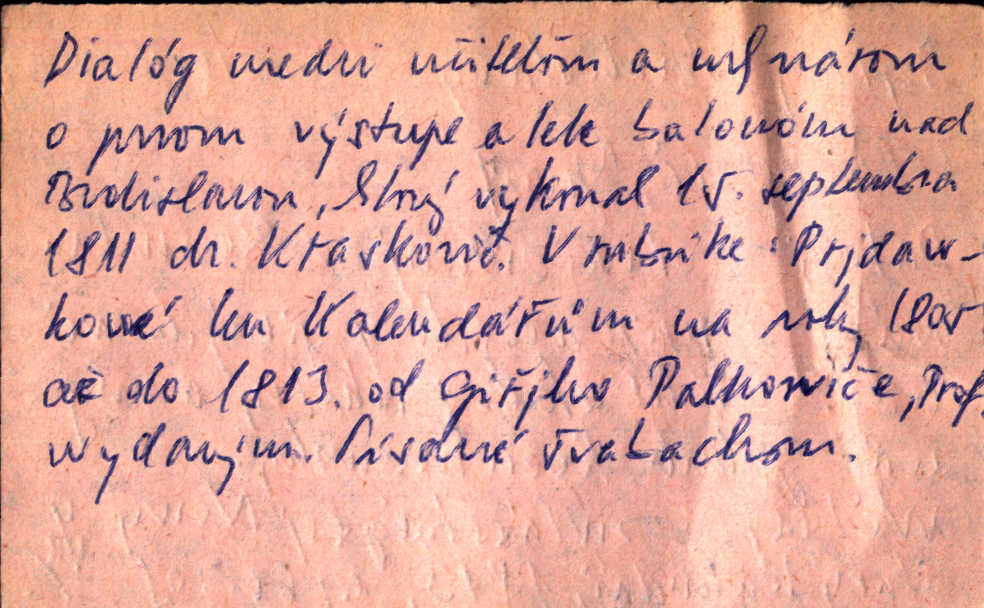 Dialóg medzi učiteľom a mlynárom
o prvom výstupe a lete balónóm nad
Bratislavou, ktorý vykonal 15. septembra
1811 dr. Kraskovič. V rubrike: Prjdaw-
kowé ku Kalendářům na roky 1805
až do 1813. od Giřjho Palkowiče, Prof.
wydaným. Písané švabachom.